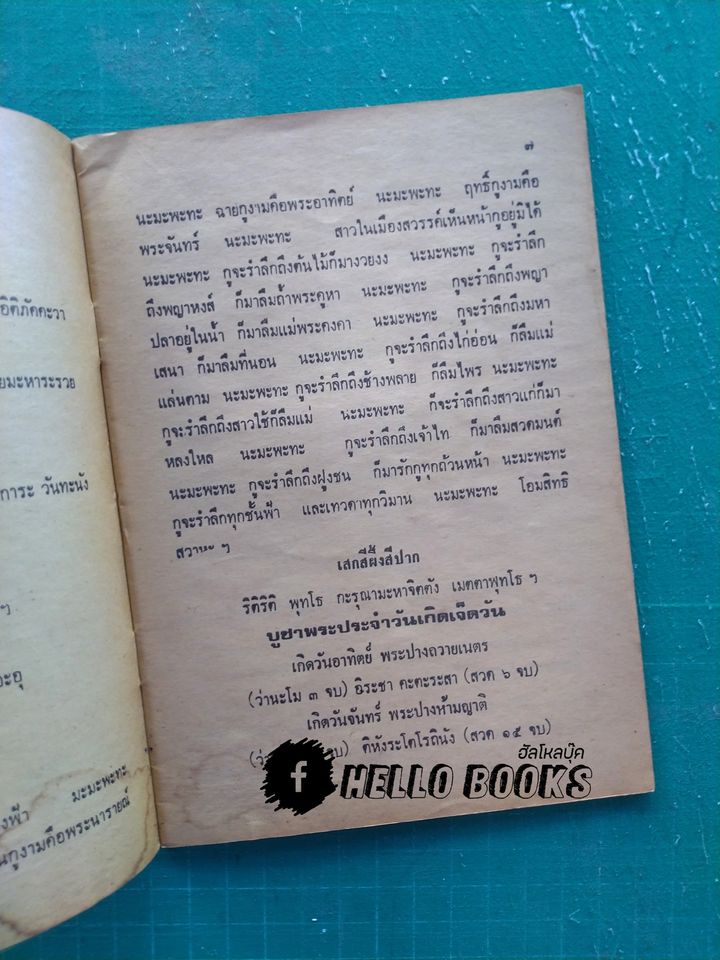 อิติภัคคะวา
ยมะหาระรวย
การะ วันทะนัง
ฯ
ะอุ
งฟ้า มะมะพะทะ
นกูงามคือพระนารายณ์
๗
นะมะพะทะ ฉายกูงามคือพระอาทิตย์ นะมะพะทะ ฤทธิ์กูงามคือ
พระจันทร์ นะมะพะทะ สาวในเมืองสวรรค์เห็นหน้ากูอยู่มิได้
นะมะพะทะ กูจะรำลึกถึงต้นไม้ก็มางวยงง นะมะพะทะ กูจะรำลึก
ถึงพญาหงส์ ก็มาลืมถ้ำพระคูหา นะมะพะทะ กูจะรำลึกถึงพญา
ปลาอยู่ในน้ำ ก็มาลืมแม่พระคงคา นะมะพะทะ กูจะรำลึกถึงมหา
เสนา ก็มาลืมที่นอน นะมะพะทะ กูจะรำลึกถึงไก่อ่อน ก็ลืมแม่
แล่นตาม นะมะพะทะ กูจะรำลึกถึงช้างพลาย ก็ลืมไพร นะมะพะทะ
กูจะรำลึกถึงสาวใช้ก็ลืมแม่ นะมะพะทะ ก็จะรำลึกถึงสาวแก่ก็มา
หลงใหล นะมะพะทะ กูจะรำลึกถึงเจ้าไท ก็มาลืมสวดมนต์
นะมะพะทะ กูจะรำลึกถึงฝูงชน ก็มารักกูทุกถ้วนหน้า นะมะพะทะ
กูจะรำลึกทุกชั้นฟ้า และเทวดาทุกวิมาน นะมะพะทะ โอมสิทธิ
สวาหะ ฯ
เสกสีผึ้งสีปาก
ริติริติ พุทโธ กะรุณามะหาจิตตัง เมตตาพุทโธ ฯ
บูชาพระประจำวันเกิดเจ็ดวัน
เกิดวันอาทิตย์ พระปางถวายเนตร
(ว่านะโม ๓ จบ) อิระชา คะตะระสา (สวด ๖ จบ)
เกิดวันจันทร์ พระปางห้ามญาติ
จบ) ติหังระโตโรถินัง (สวด ๑๕ จบ)
ฮัลโหลบุ๊ค
f HELLO BOOKS